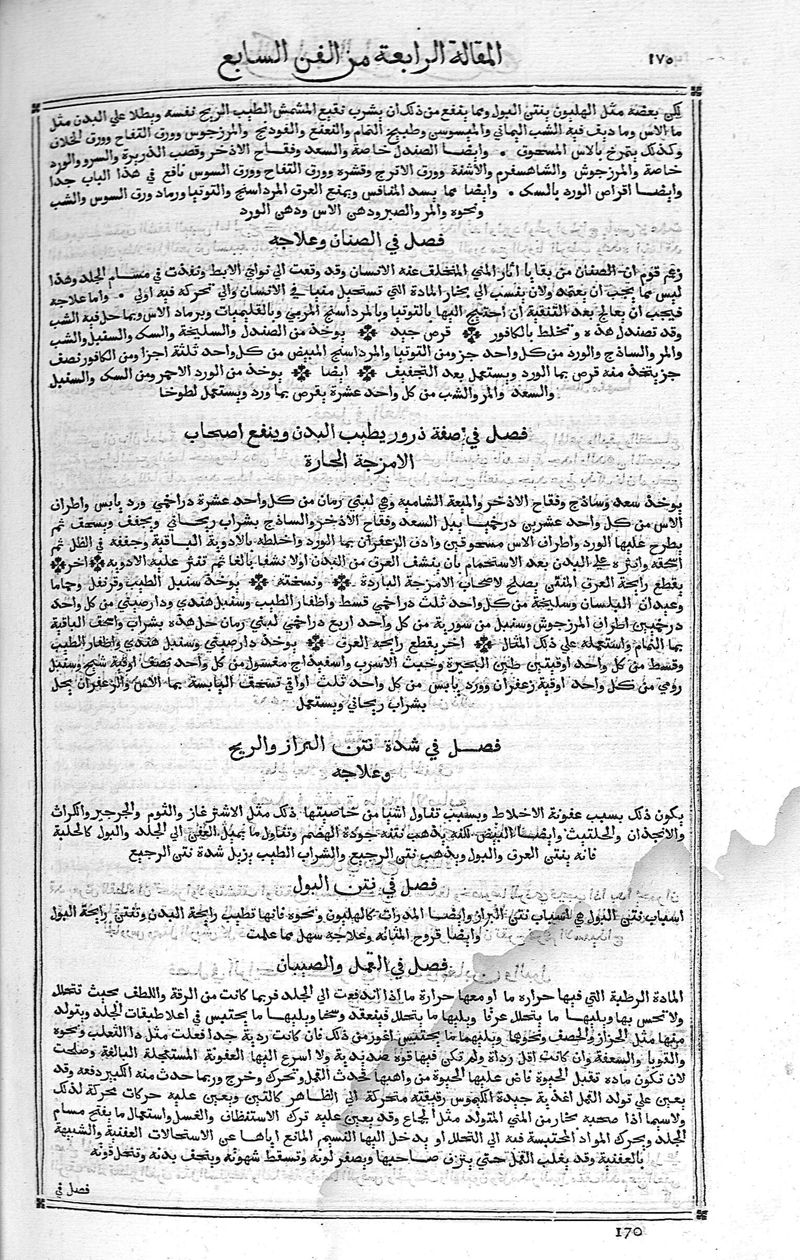 المقالة الرابعة من الفن السابع
١٧٥
لكن بعضه مثل الهليون ينتن البول ومما ينفع من ذلك ان يشرب نقيع المشمش الطيب الريح نفسه ويطلا علي البدن مثل
ما الاس وما ديف فيه الشب اليماني والميسوسي وطبيخ النمام والنعنع والفودنج والمرزجوس وورق التفاح وورق الخلاف
وكذلك يتمرخ بالاس المسحوق وايضا الصندل خاصة والسعد وفقاح الاذخر وقصب الذريرة والسرو والورد
خاصة والمرزجوش والشاهسفرم والاشنة وورق الاترج وقشره وورق التفاح وورق السوس نافع في هذا الباب جدا
وايضا اقراص الورد بالسك وايضا مما يسد المنافس ويمنع العرق المرداسنج والتوتيا ورماد ورق السوس والشب
ونحوه والمر والصبر ودهن الاس ودهن الورد
فصل في الصنان وعلاجه
زعم قوم ان الصنان من بقايا اثار المني المتخلف عنه الانسان وقد وقعت الي نواتي الابط ونفذت في مسام الجلد وهذا
ليس مما يجب ان يعتمد ولان ينسب الي بخار المادة التي تستحيل منيا في الانسان والي تحركه فيه اولي واما علاجه
فيجب ان يعالج بعد التنقية ان احتيج اليها بالتوتيا وبالمرداسنج المربي وبالقليميات وبرماد الاس وبما حل فيه الشب
وقد تصندل هذه وتخلط بالكافور قرص جيد يوخذ من الصندل والسليخة والسك والسنبل والشب
والمر والساذج والورد من كل واحد جز ومن التوتيا والمرداسنج المبيض من كل واحد ثلثة اجزا ومن الكافور نصف
جز يتخذ منه قرص بما الورد ويستعمل بعد التجفيف ايضا يوخذ من الورد الاحمر ومن السك والسنبل
والسعد والمر والشب من كل واحد عشرة يقرص بما ورد ويستعمل لطوخا
فصل في صفة ذرور يطيب البدن وينفع اصحاب
الامزجة الحارة
يوخذ سعد وساذج وفقاح الاذخر والميعة الشامية وهي لبني رمان من كل واحد عشرة دراخمي ورد يابس واطراف
الاس من كل واحد عشرين درخميا يبل السعد وفقاح الاذخر والساذج بشراب ريحاني ويجفف ويسحف ثم
يطرح عليها الورد واطراف الاس مسحوقين وادف الزعفران بما الورد واخلطه بالادوية الباقية وجففه في الظل ثم
اسحقه وانثره علي البدن بعد الاستحمام بان ينشف العرق من البدن اولا نشفا بالغا ثم تنثر عليه الادوية اخر
يقطع رايحة العرق المنتن يصلح لاصحاب الامزجة الباردة ونسخته يوخذ سنبل الطيب وقرنفل وحماما
وعيدان البلسان وسليخة من كل واحد ثلث دراخمي قسط واظفار الطيب وسنبل هندي ودارصيني من كل واحد
درخميين اطراف المرزجوش وسنبل من سورية من كل واحد اربع دراخمي لبني رمان حل هذه بشراب واسحف الباقية
بما النمام واستعمله علي ذلك المثال اخر يقطع رايحة العرق يوخذ دارصيني وسنبل هندي واظفار الطيب
وقسط من كل واحد اوقيتين طين البحيرة وخبث الاسرب واسفيداج مغسول من كل واحد نصف اوقية شيح وسنبل
رومي من كل واحد اوقية زعفران وورد يابس من كل واحد ثلث اواقي تسحف اليابسة بما الاس والزعفران يحل
بشراب ريحاني ويستعمل
فصل في شدة نتن البراز والريح
وعلاجه
يكون ذلك بسبب عفونة الاخلاط وبسبب تناول اشيا من خاصيتها ذلك مثل الاشترغاز والثوم والجرجير والكراث
والانجذان والحلتيث وايضا البيض لكنه يذهب نتنه جودة الهضم وتناول ما يميل العفن الي الجلد والبول كالحلبة
فانه ينتن العرق والبول ويذهب نتن الرجيع والشراب الطيب يزيل شدة نتن الرجيع
فصل في نتن البول
اسباب نتن البول هي اسباب نتن البراز وايضا المدرات كالهليون ونحوه فانها تطيب رايحة البدن وتنتن رايحة البول
وايضا قروح المثانة وعلاجه سهل مما علمت
فصل في القمل والصيبان
المادة الرطبة التي فيها حراره ما او معها حرارة ما اذا اندفعت الي الجلد فربما كانت من الرقة واللطف بحيث تتحلل
ولا تحس بها ويليها ما يتحلل عرقا ويليها ما يتحلل فينعقد وسخا ويليها ما يحتبس في اعلا طبقات الجلد ويتولد
منها مثل الحزاز والحصف ونحوها ويليها ما يحتبس اغور من ذلك فان كانت ردية جدا فعلت مثل دا الثعلب ونحوه
والقوبا والسعفة وان كانت اقل رداة ولم تكن فيها قوة صديدية ولا اسرع اليها العفونة المستعجلة البالغة وصلحت
لان تكون مادة تقبل الحيوة فاض عليها الحيوة من واهبها فحدث القمل وتحرك وخرج وربما حدث منه الكبير دفعة وقد
يعين علي تولد القمل اغذية جيدة الكيموس رقيقته متحركة الي الظاهر كالتين ويعين عليه حركات محركة لذلك
ولاسيما اذا صحبه بخار من المني المتولد مثل الجماع وقد يعين عليه ترك الاستنظاف والغسل واستعمال ما يفتح مسام
الجلد ويحرك المواد المحتبسة فيه الي التحلل او يدخل اليها النسيم المانع اياها عن الاستحالات العفنية والشبيهة
بالعفنية وقد يغلب القمل حتي ينزف صاحبها ويصفر لونه وتسقط شهوته ويجف بدنه وتنحل قوته
فصل في
170